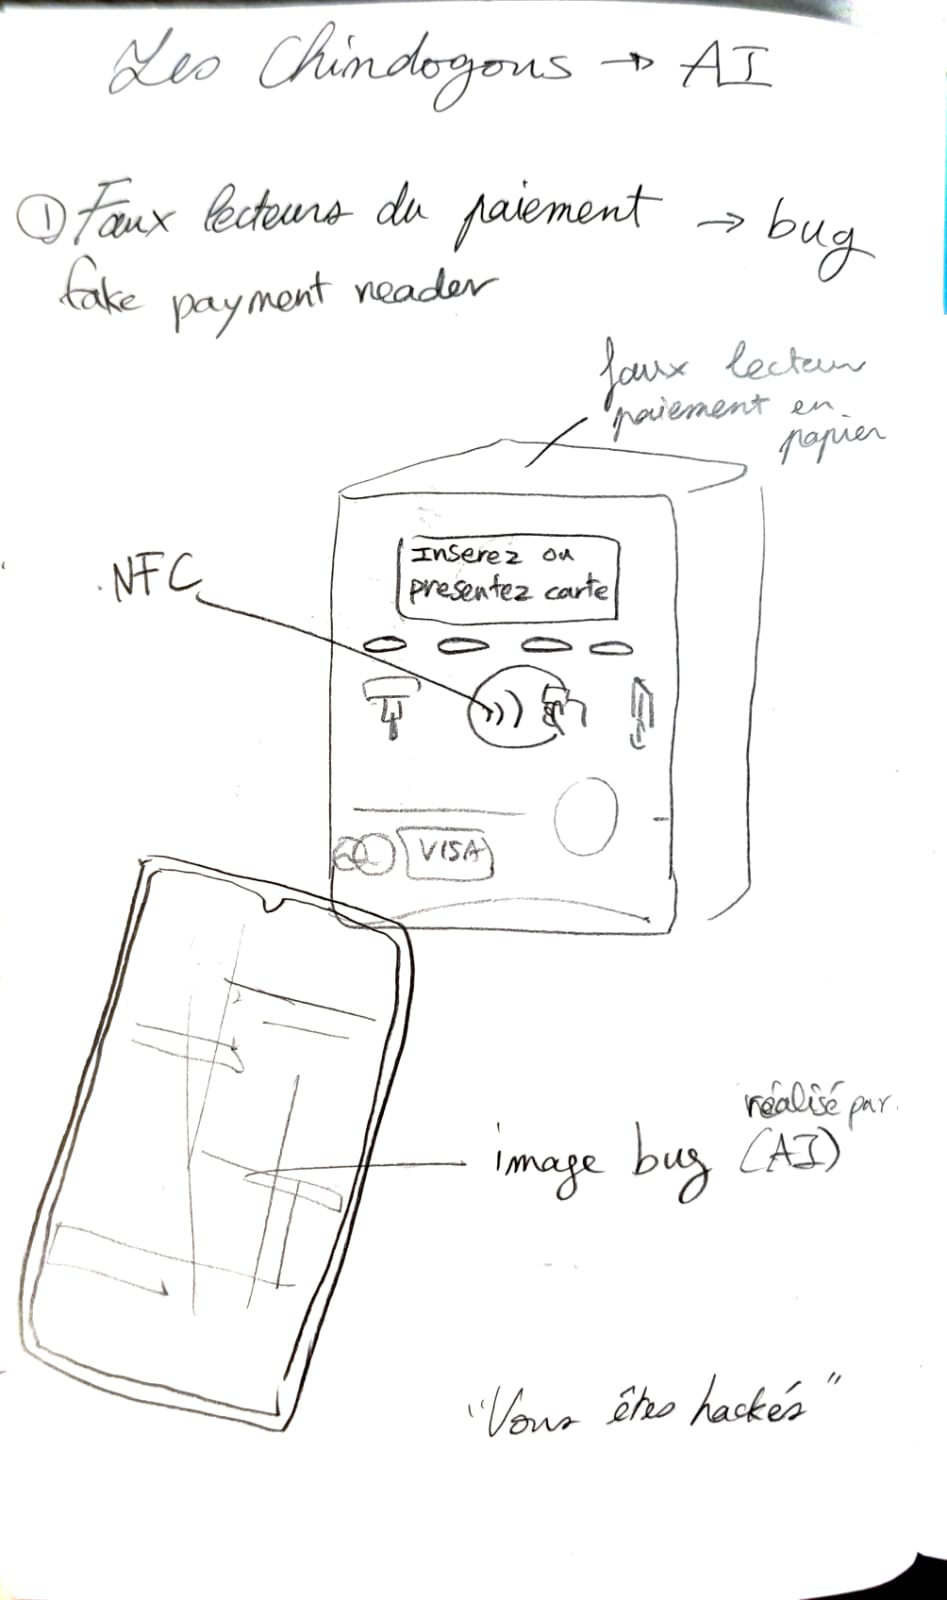 Les Chindogous → AI
① Faux lecteurs du paiement → bug
fake payment reader
faux lecteur
paiement en
papier
NFC
Inserez ou
presentez carte
VISA
réalisé par
image bug (AI)
"Vous êtes hackés"